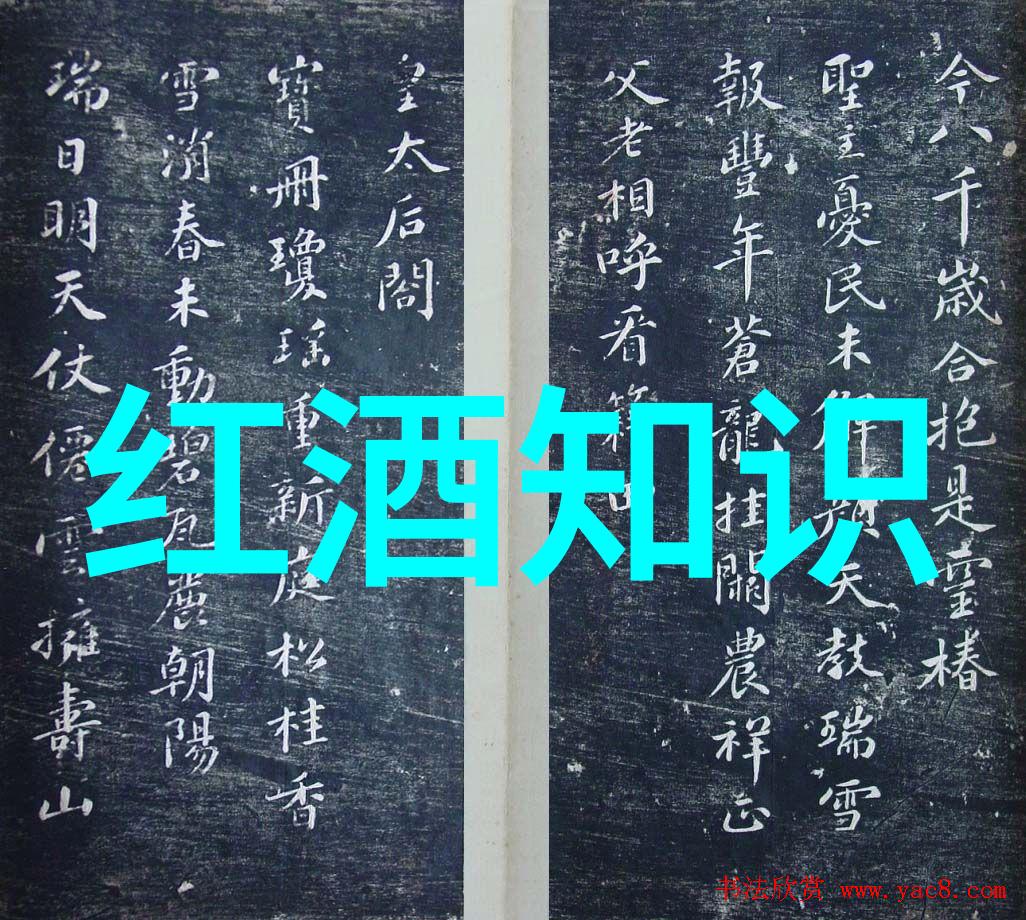 今八千歲合抱是靈椿
聖主憂民未解顏天教瑞雪
報豐年蒼龍挂闕農祥正
父老相呼看籍田
皇太后閤
寶冊瓊瑤重新庭松桂香
雪消春未動碧瓦麗朝陽
瑞日明天仗僊雲擁壽山
红酒知识
书法欣赏 www.yac8.com